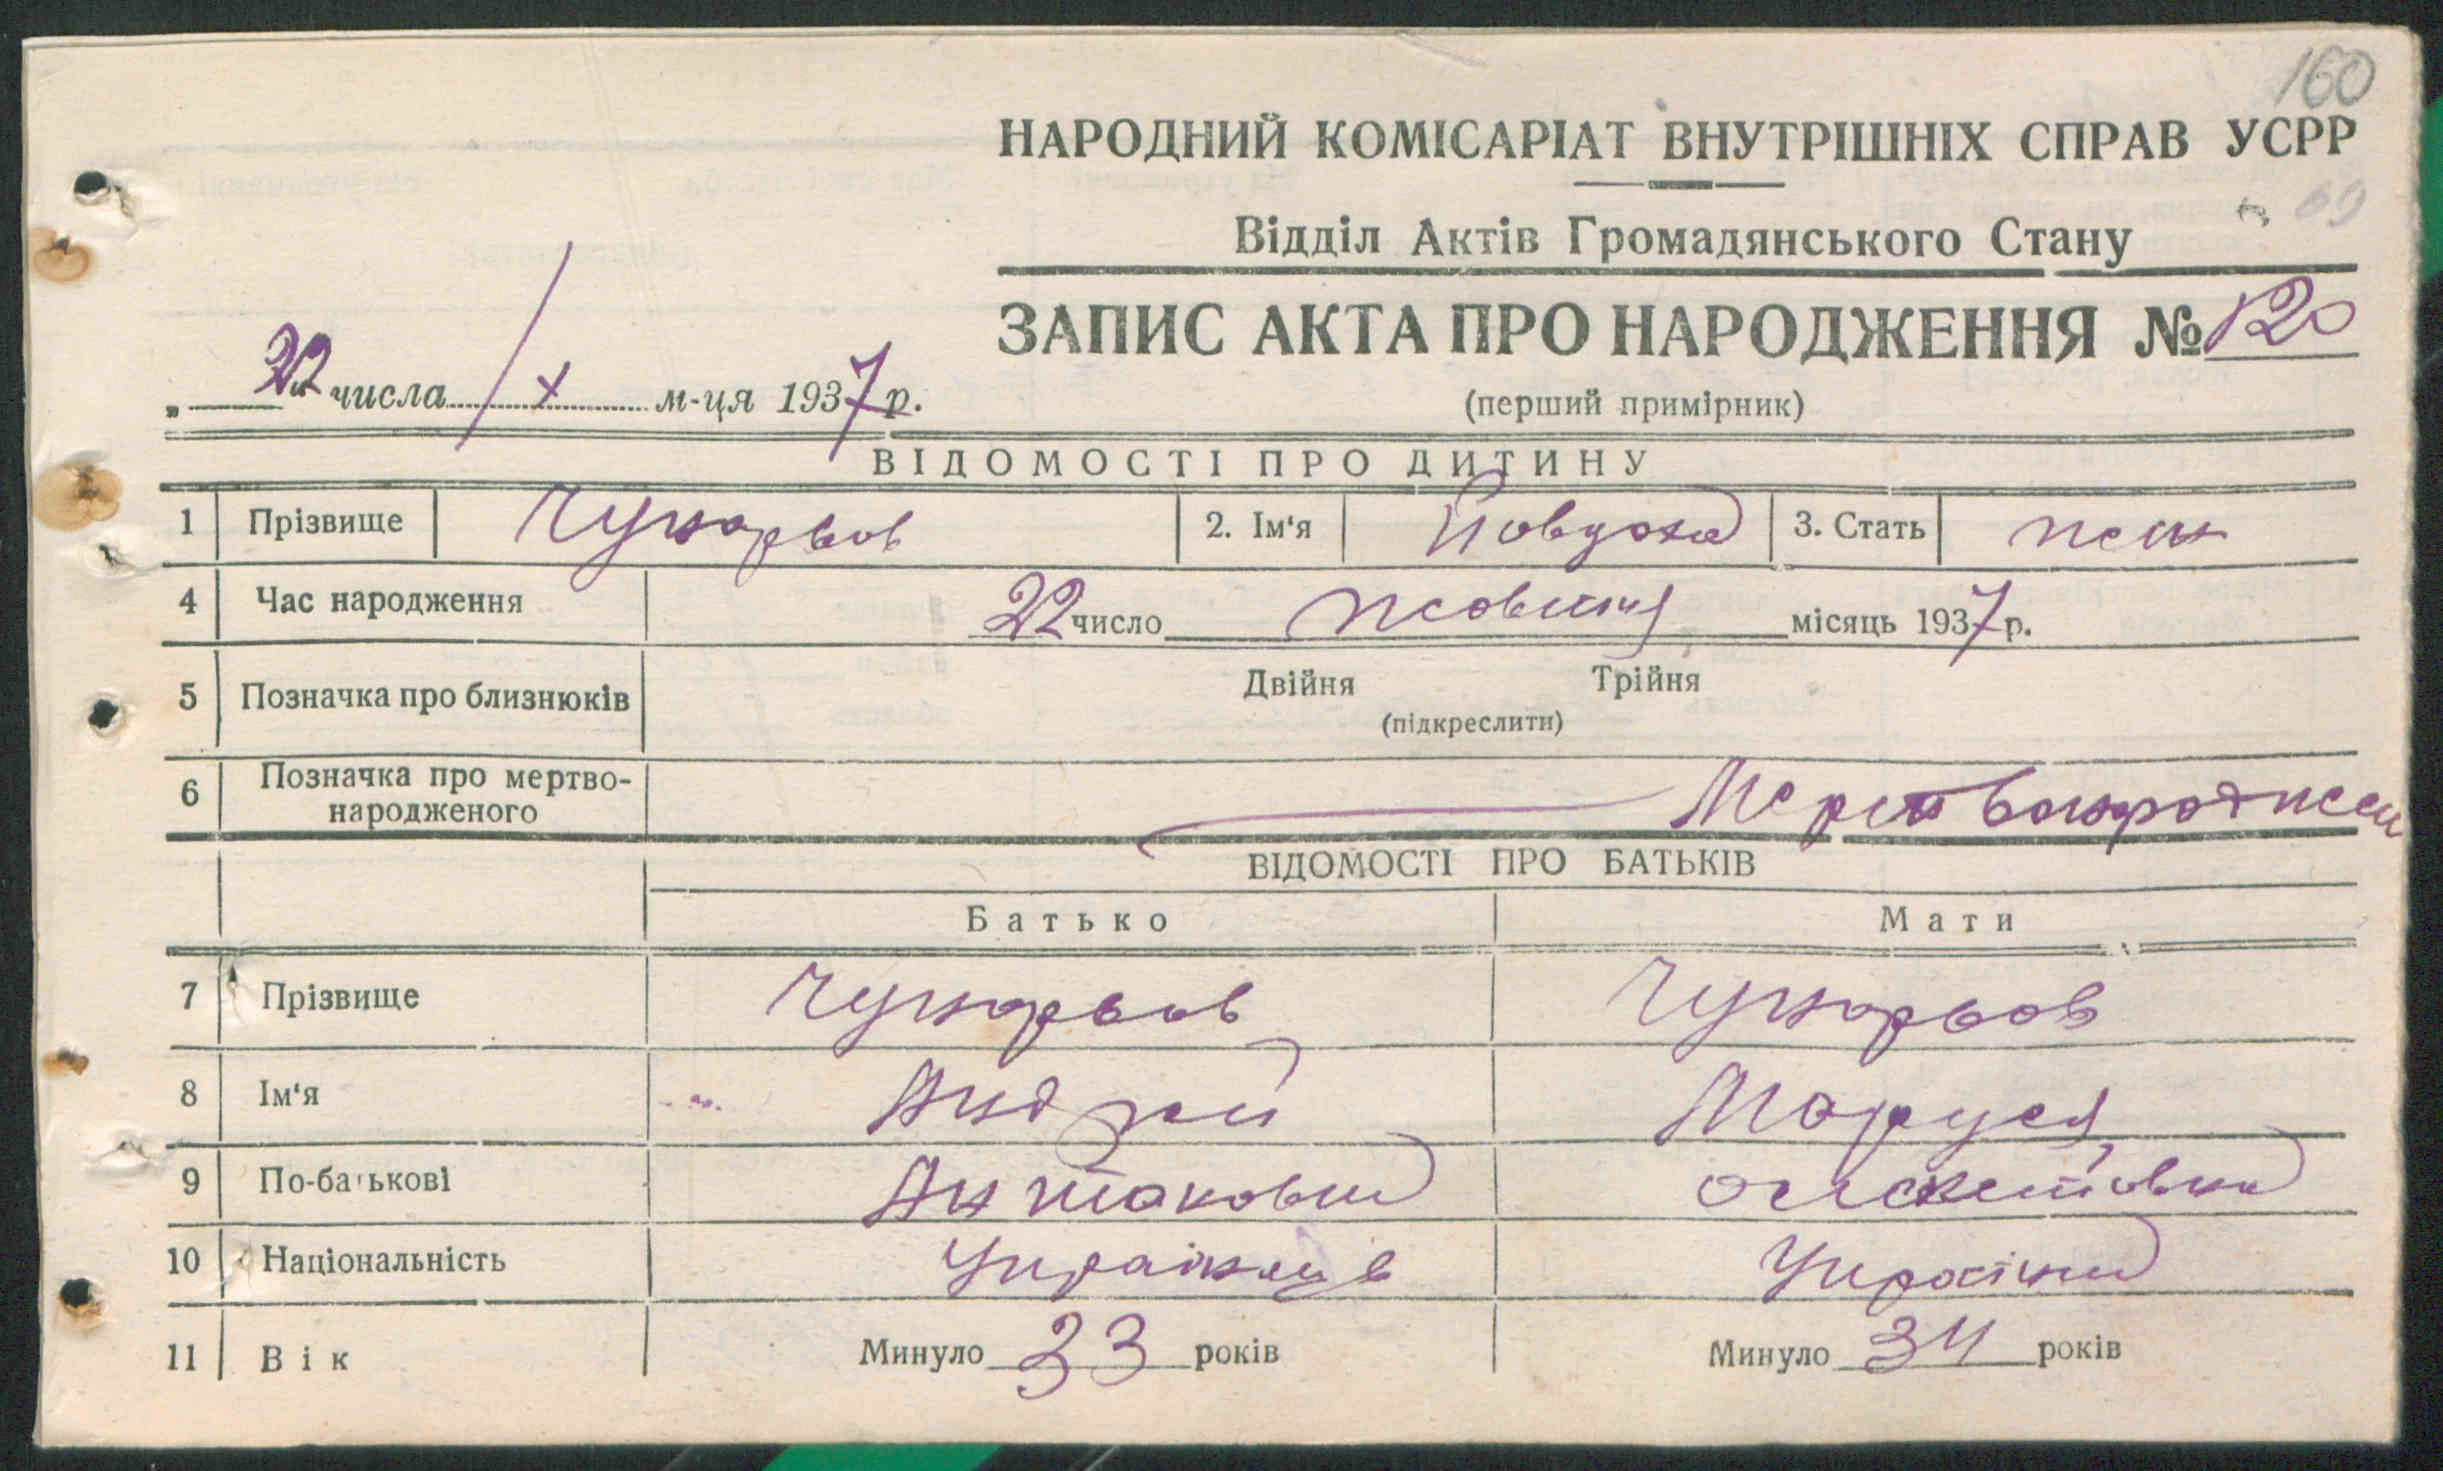 160
НАРОДНИЙ КОМІСАРІАТ ВНУТРІШНІХ СПРАВ УСРР
69
Відділ Актів Громадянського Стану
ЗАПИС АКТА ПРО НАРОДЖЕННЯ № 120
„ 22 числа / X м-ця 1937 р.
(перший примірник)
ВІДОМОСТІ ПРО ДИТИНУ
1 Прізвище 2. Ім'я Йовдоха 3. Стать жен
4 Час народження 22 число жовтня місяць 1937 р.
5 Позначка про близнюків Двійня Трійня
(підкреслити)
6 Позначка про мертво-
народженого Мертвонароджен
ВІДОМОСТІ ПРО БАТЬКІВ
Батько Мати
7 Прізвище
8 Ім'я Андрей Маруся
9 По-батькові
10 Національність
11 Вік Минуло 33 років Минуло 34 років